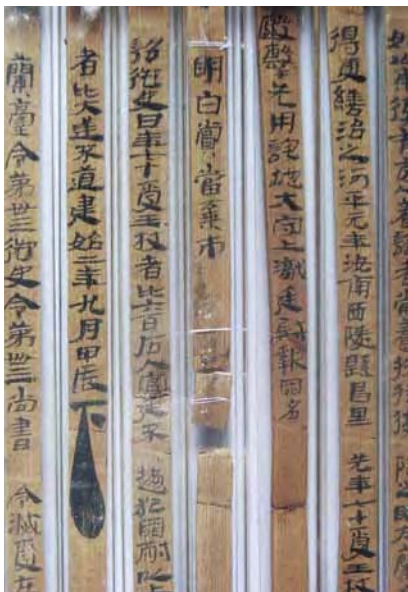 如山東復有旁人養謹者常養扶持復除之明在蘭
得更繕治之河平元年汝南西陵縣昌里 先年七十受王杖
毆擊先用訴地大守上讞廷尉報罪名
明白賞當棄市
詔御史曰年七十受王杖者比六百石入官廷不 趨犯罪耐以上
者比大逆不道建始二年九月甲辰下
蘭臺令第卅三御史令第卌三尚書 令滅受在